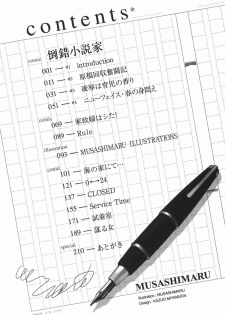 contents*
comic 倒錯小説家
001 — #1 introduction
011 — #2 原稿回収奮闘記
031 — #3 凌辱は育児の香り
051 — #4 ニューフェイス・春の身悶え
comic
069 — 家政婦はシた!
089 — Rule
illustration
093 — MUSASHIMARU ILLUSTRATIONS.
comic
101 — 海の家にて…
121 — 0⟷24
137 — CLOSED
155 — Service Time
171 — 試着室
189 — 謀る女
special
210 — あとがき
MUSASHIMARU
Illustration: MUSASHIMARU
Design: KAZUO MIYAMURA